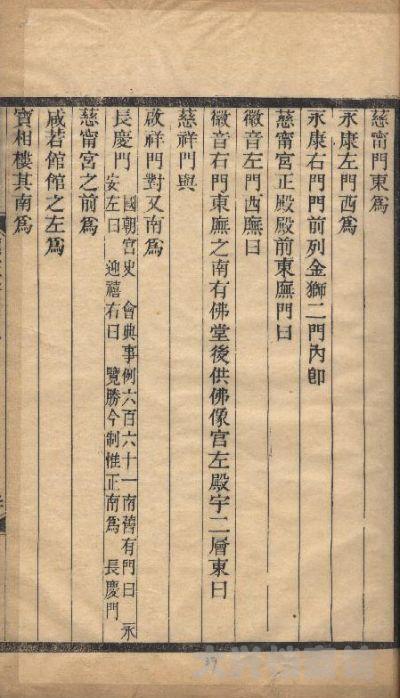 慈甯門東爲
永康左門西爲
永康右門門前列金獅二門內卽
慈甯宮正殿殿前東廡門曰
徽音左門西廡曰
徽音右門東廡之南有佛堂後供佛像宮左殿宇二層東曰
慈祥門與
啟祥門對又南爲
長慶門 國朝宮史 會典事例六百六十一南舊有門曰 永
安左曰 迎禧右曰 覽勝今制惟正南爲 長慶門
慈甯宮之前爲
咸若館館之左爲
寶相樓其南爲